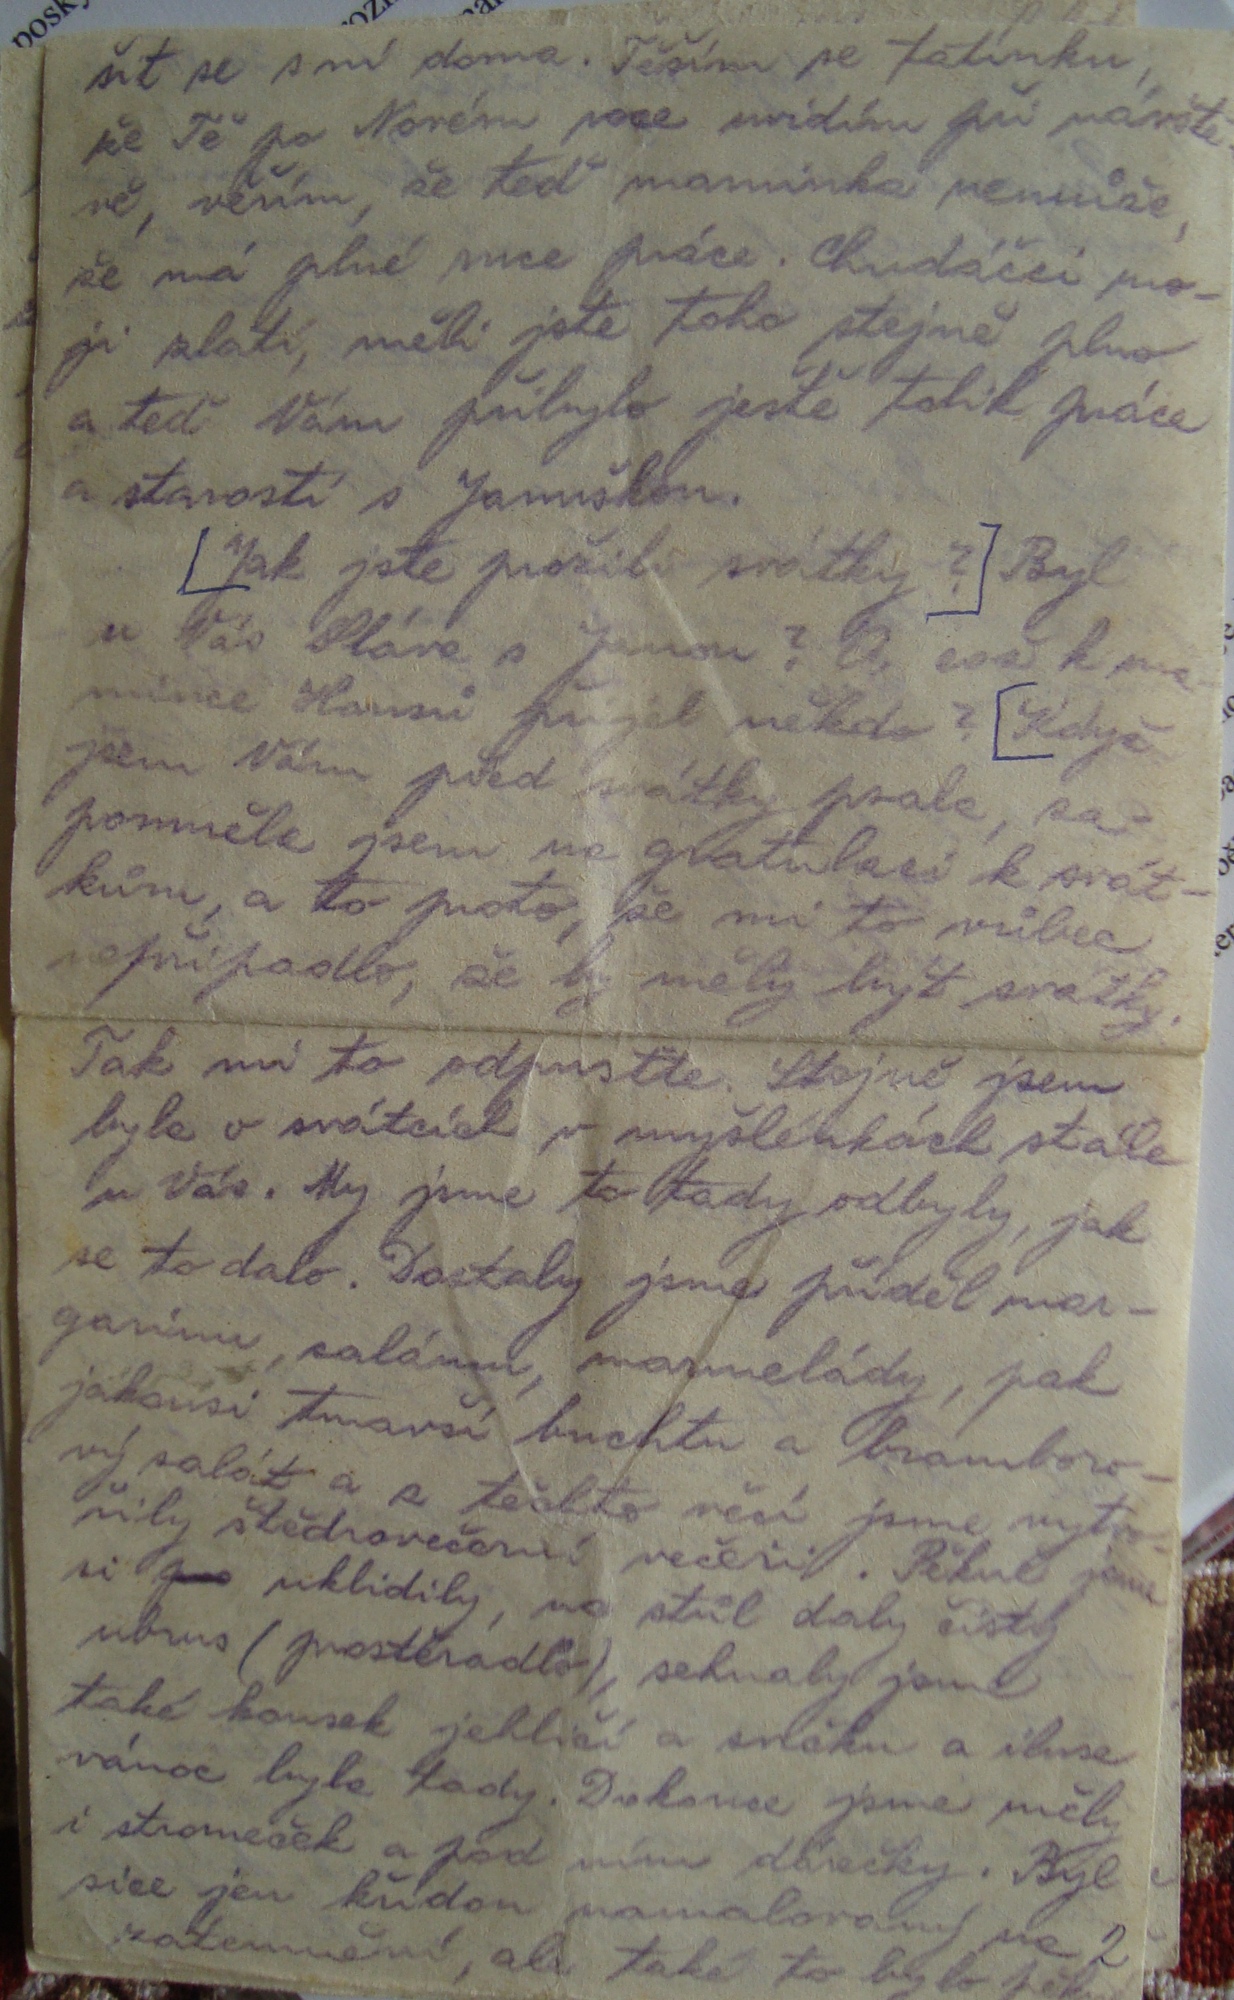 šit se s ní doma. Těším se tatínku,
že Tě po Novém roce uvidím při návště-
vě, věřím, že teď maminka nemůže,
že má plné ruce práce. Chudáčci mo-
ji zlatí, měli jste toho stejně plno
a teď Vám přibylo ještě tolik práce
a starostí s Januškou.
[Jak jste prožili svátky?] Byl
u Vás Sláva s Jenou? A což k ma-
mince Hansů přijel někdo? [Když
jsem Vám před svátky psala, za-
pomněla jsem na gratulaci k svát-
kům, a to proto, že mi to vůbec
nepřipadlo, že by měly být svátky.
Tak mi to odpusťte. Stejně jsem
byla o svátcích v myšlenkách stále
u Vás. My jsme to tady odbyly, jak
se to dalo. Dostaly jsme příděl mar-
garinu, salámu, marmelády, pak
jakousi tmavší buchtu a bramboro-
vý salát a z těchto věcí jsme vytvo-
řily štědrovečerní večeři. Pěkně jsme
si uklidily, na stůl daly čistý
ubrus (prostěradlo), sehnaly jsme
také kousek jehličí a svíčku a iluse
vánoc byla tady. Dokonce jsme měly
i stromeček a pod ním dárečky. Byl
sice jen křídou namalovaný na
zatemnění, ale také to bylo
2